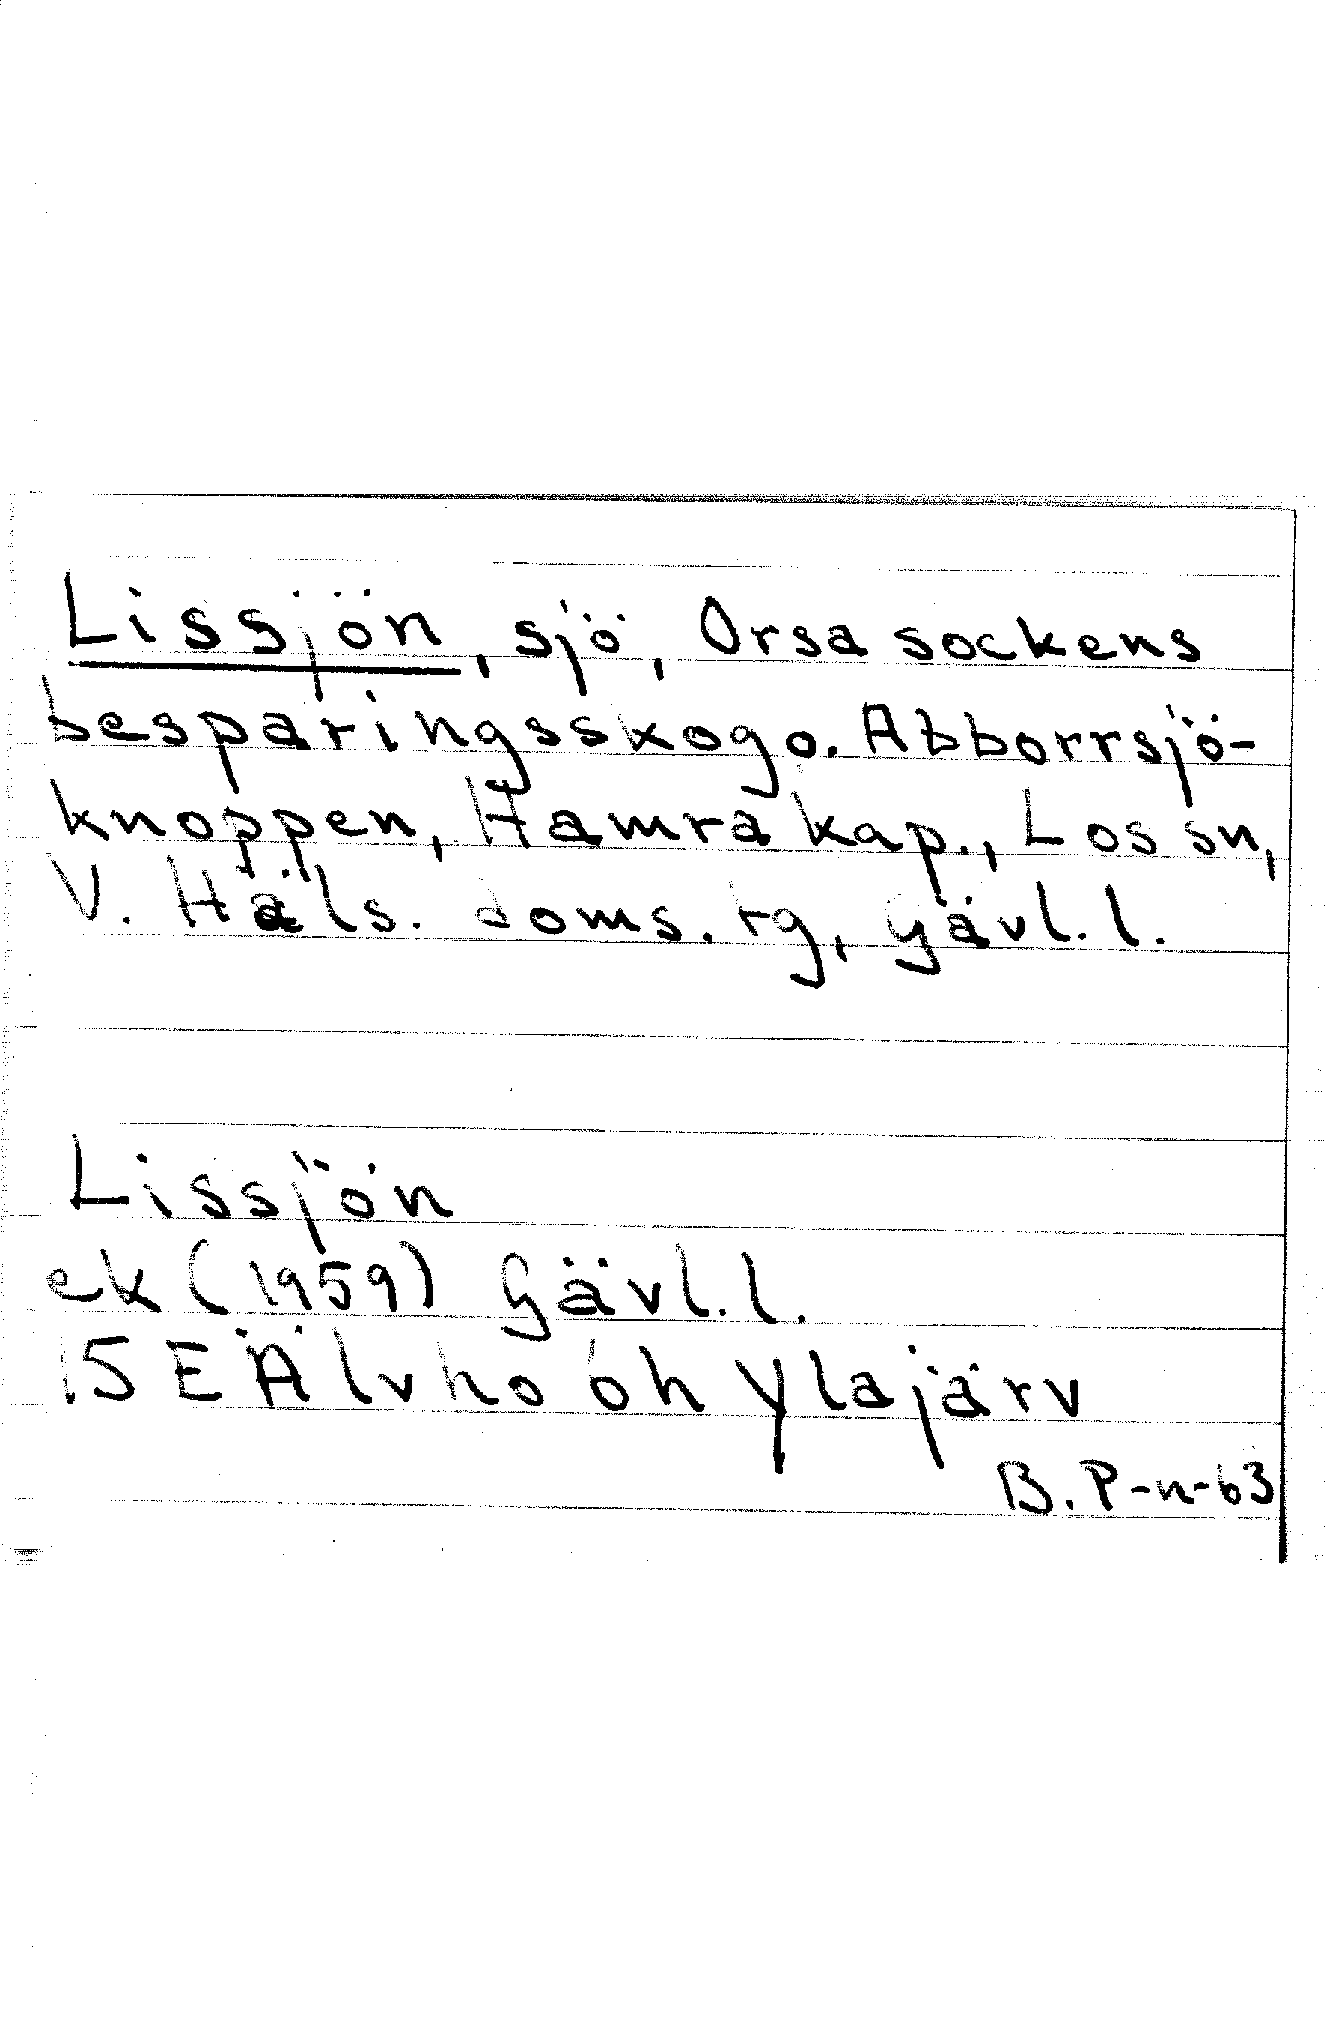 Lissjön, sjö, Orsa sockens
besparingsskog o. Abborrsjö-
knoppen, Hamra kap., Los sn,
V. Häls. doms. tg, Gävl. l.
Lissjön
ek (1959) Gävl. l.
15 E Älvho öh Ylajärv
B. P-n-63